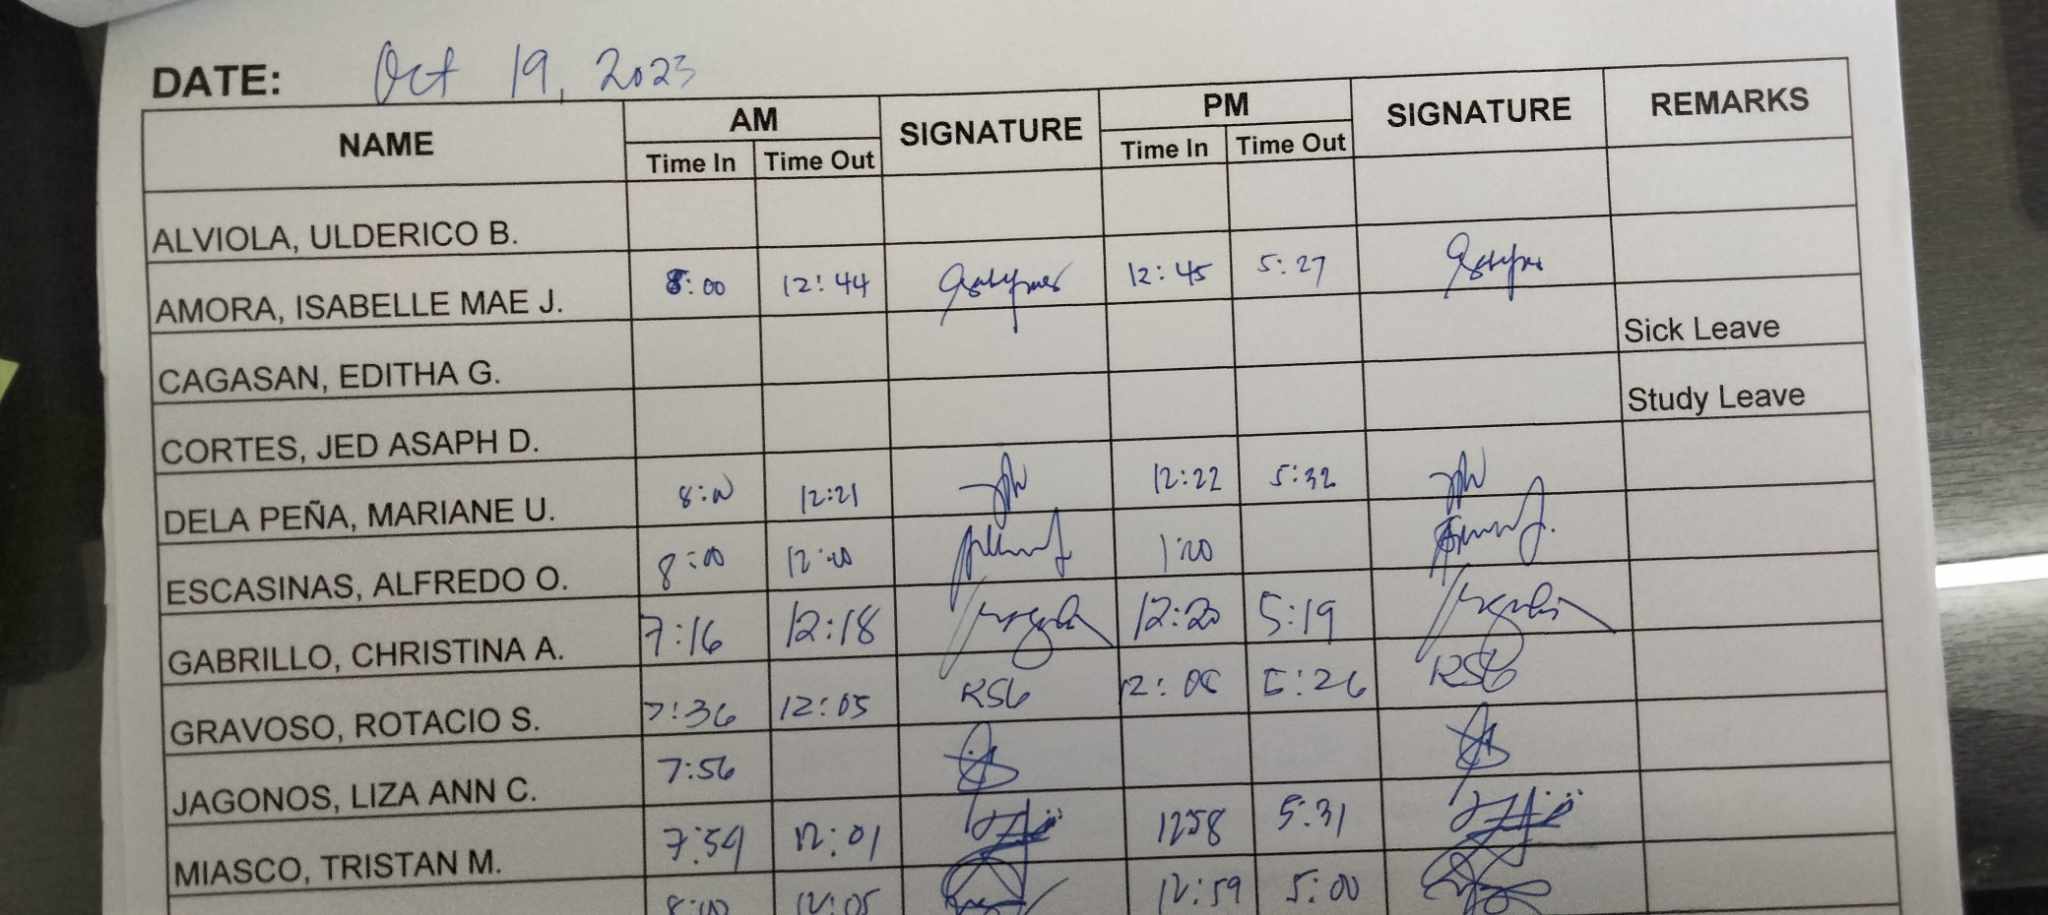 DATE: Oct 19, 2023
NAME AM SIGNATURE PM SIGNATURE REMARKS
Time In Time Out Time In Time Out
ALVIOLA, ULDERICO B.
AMORA, ISABELLE MAE J. 8:00 12:44 12:45 5:27
CAGASAN, EDITHA G. Sick Leave
CORTES, JED ASAPH D. Study Leave
DELA PEÑA, MARIANE U. 8:00 12:21 12:22 5:32
ESCASINAS, ALFREDO O. 8:00 1:20
GABRILLO, CHRISTINA A. 7:16 12:18 12:20 5:19
GRAVOSO, ROTACIO S. 7:36 12:05 RSG 5:26 RSG
JAGONOS, LIZA ANN C. 7:56
MIASCO, TRISTAN M. 7:59 12:01 1258 5:31
8:00 12:05 12:59 5:00